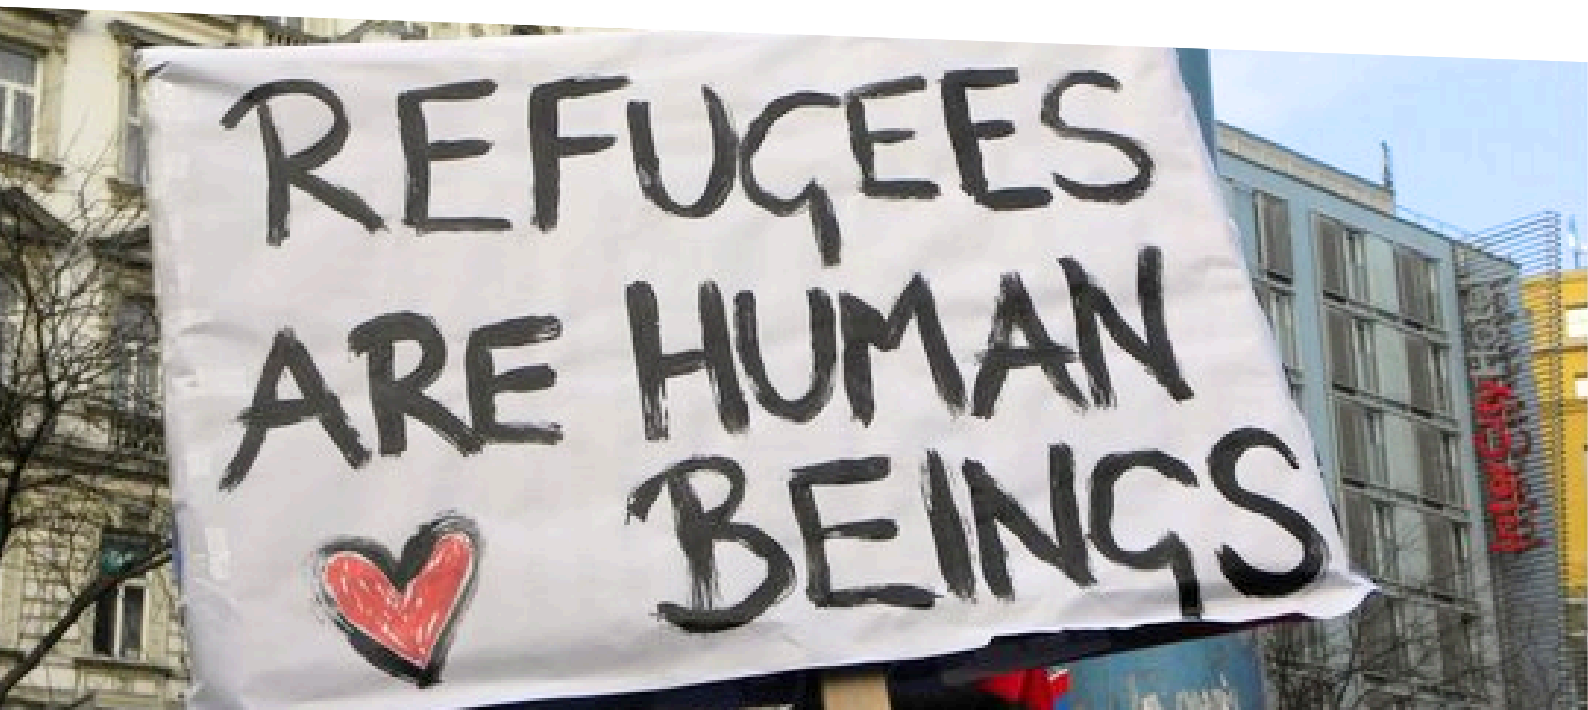 REFUGEES
ARE HUMAN
BEINGS
InterCity
HOTEL